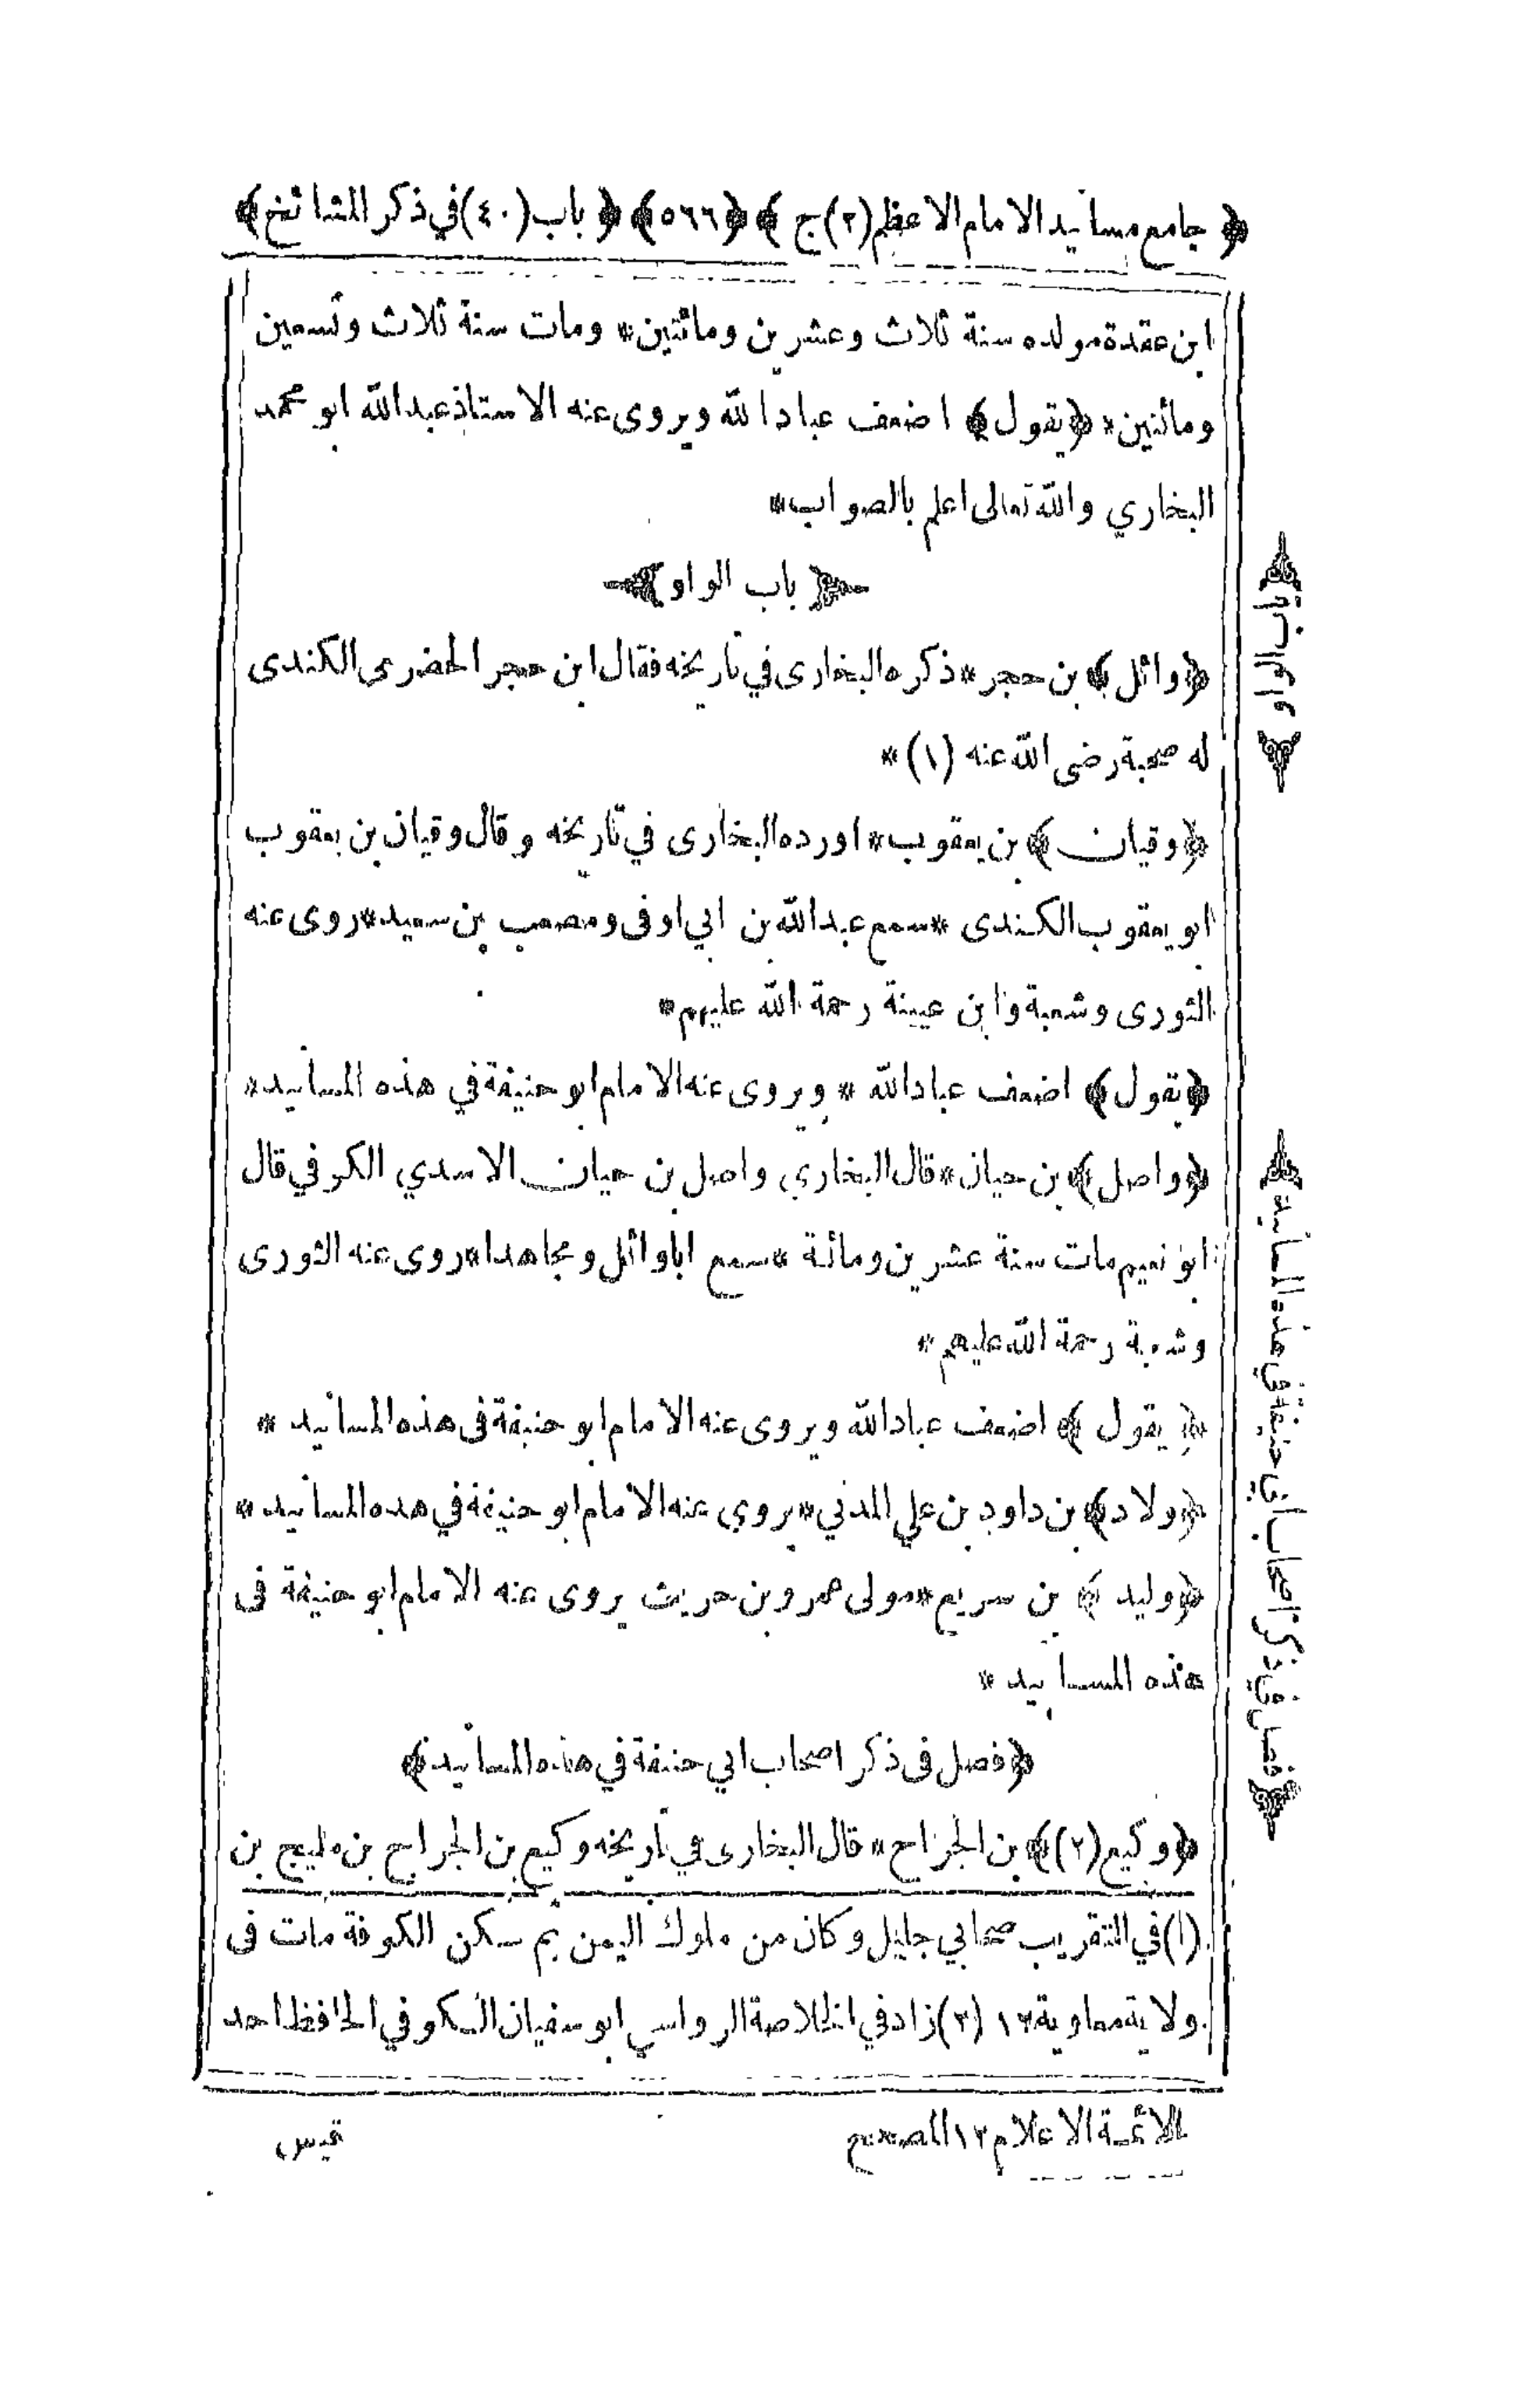 ﴿ جامع مسانيد الامام الاعظم (٢) ج ﴾ ﴿٥٦٦﴾ ﴿ باب (٤٠) في ذكر المشائخ ﴾
ابن عقدة مولده سنة ثلاث وعشرين ومائتين * ومات سنة ثلاث وتسعين
ومائتين * ﴿يقول﴾ اضعف عباد الله ويروى عنه الاستاذ عبد الله ابو محمد
البخاري والله تعالى اعلم بالصواب *
﴿ باب الواو ﴾
﴿وائل﴾ بن حجر * ذكره البخارى في تاريخه فقال ابن حجر الحضرمى الكندى
له صحبة رضى الله عنه (١) *
﴿وقيان﴾ بن يعقوب * اورده البخارى في تاريخه وقال وقيان بن يعقوب
ابو يعقوب الكندى * سمع عبد الله بن ابي اوفى ومصعب بن سعيد * روى عنه
الثورى وشعبة وابن عيينة رحمة الله عليهم *
﴿يقول﴾ اضعف عباد الله * ويروى عنه الامام ابو حنيفة في هذه المسانيد *
﴿واصل﴾ بن حيان * قال البخاري واصل بن حيان الاسدي الكوفي قال
ابو نعيم مات سنة عشرين ومائة * سمع اباوائل ومجاهدا * روى عنه الثورى
وشعبة رحمة الله عليهم *
﴿ يقول ﴾ اضعف عباد الله ويروى عنه الامام ابو حنيفة فى هذه المسانيد *
﴿ولاد﴾ بن داود بن علي المدني * يروي عنه الامام ابو حنيفة في هذه المسانيد *
﴿وليد ﴾ بن سريع * مولى عمرو بن حريث يروى عنه الامام ابو حنيفة فى
هذه المسانيد *
﴿فصل فى ذكر اصحاب ابي حنيفة في هذه المسانيد﴾
﴿وكيع (٢)﴾ بن الجراح * قال البخارى في تاريخه وكيع بن الجراح بن مليح بن
(١) في التقريب صحابي جليل وكان من ملوك اليمن ثم سكن الكوفة مات فى
ولاية معاوية ١٢ (٢) زاد في الخلاصة الرواسي ابو سفيان الكوفي الحافظ احد
الائمة الاعلام ١٢ المصحح
باب الواو
فصل في ذكر اصحاب ابي حنيفة في هذه المسانيد